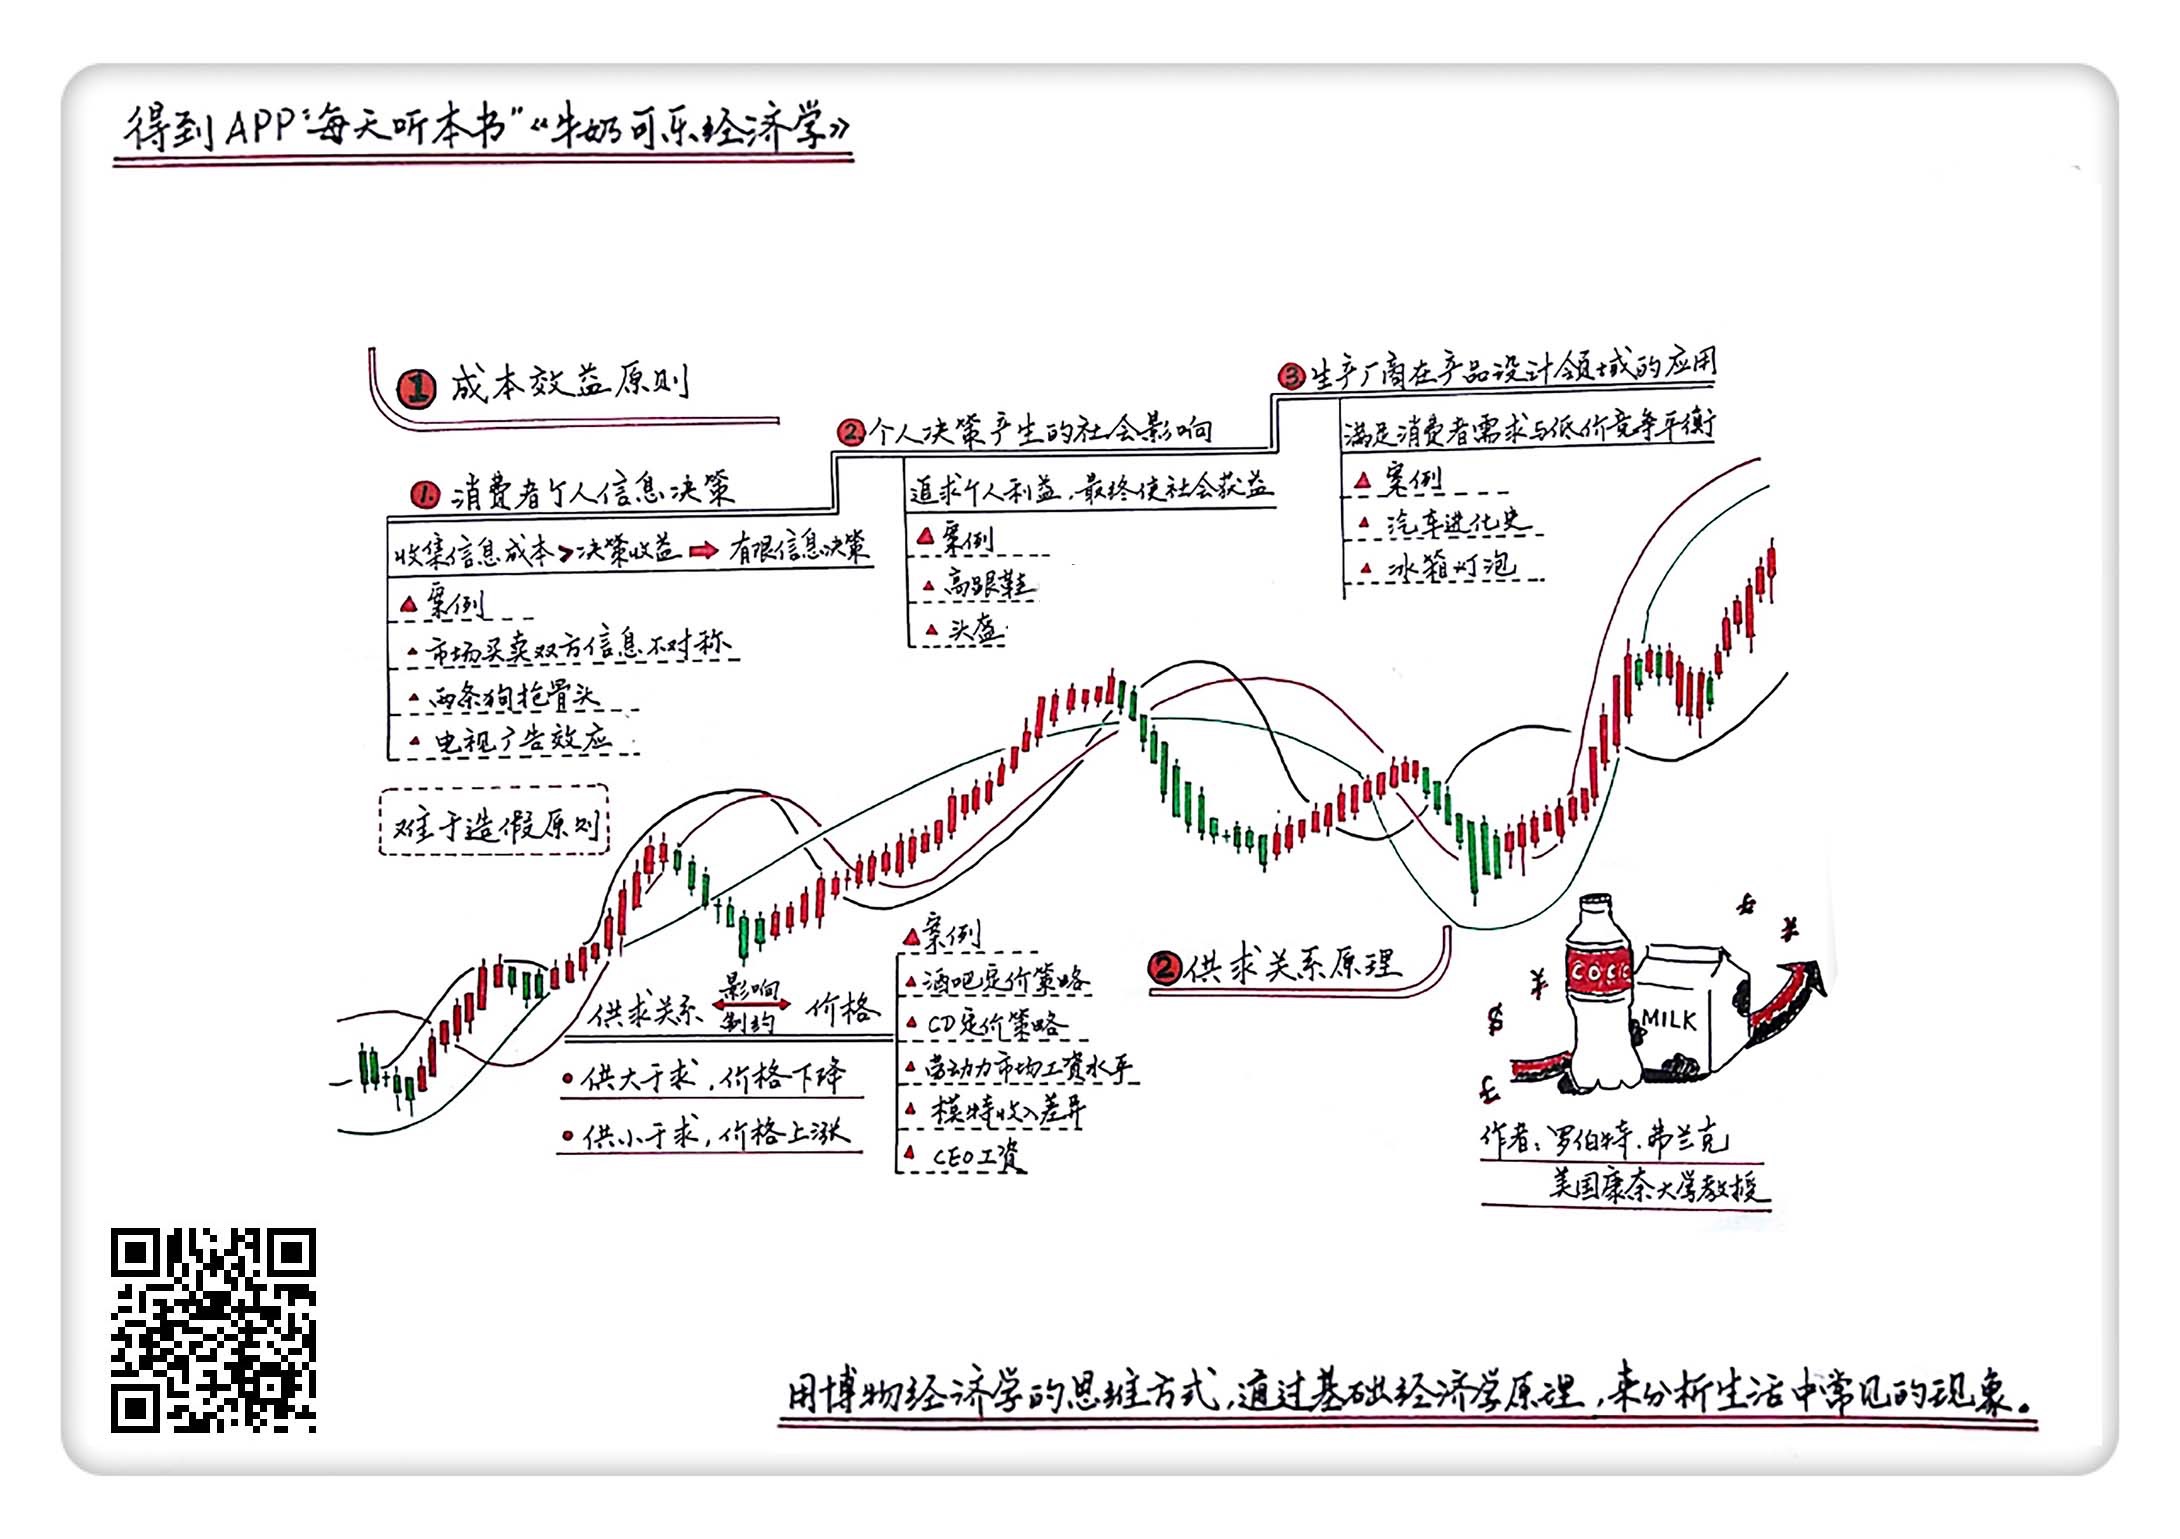 得到APP“每天听本书”《牛奶可乐经济学》
1 成本效益原则
1. 消费者个人信息决策
收集信息成本>决策收益➡有限信息决策
▲案例
▲市场买卖双方信息不对称
▲两条狗抢骨头
▲电视广告效应
难于造假原则
2. 个人决策产生的社会影响
追求个人利益,最终使社会获益
▲案例
▲高跟鞋
▲头盔
3 生产厂商在产品设计领域的应用
满足消费者需求与低价竞争平衡
▲案例
▲汽车进化史
▲冰箱灯泡
2 供求关系原理
供求关系 影响 制约 价格
•供大于求,价格下降
•供小于求,价格上涨
▲案例
▲酒吧定价策略
▲CD定价策略
▲劳动力市场工资水平
▲模特收入差异
▲CEO工资
COCC
MILK
¥
$
£
¥
作者:罗伯特.弗兰克
美国康奈大学教授
用博物经济学的思维方式,通过基础经济学原理,来分析生活中常见的现象。